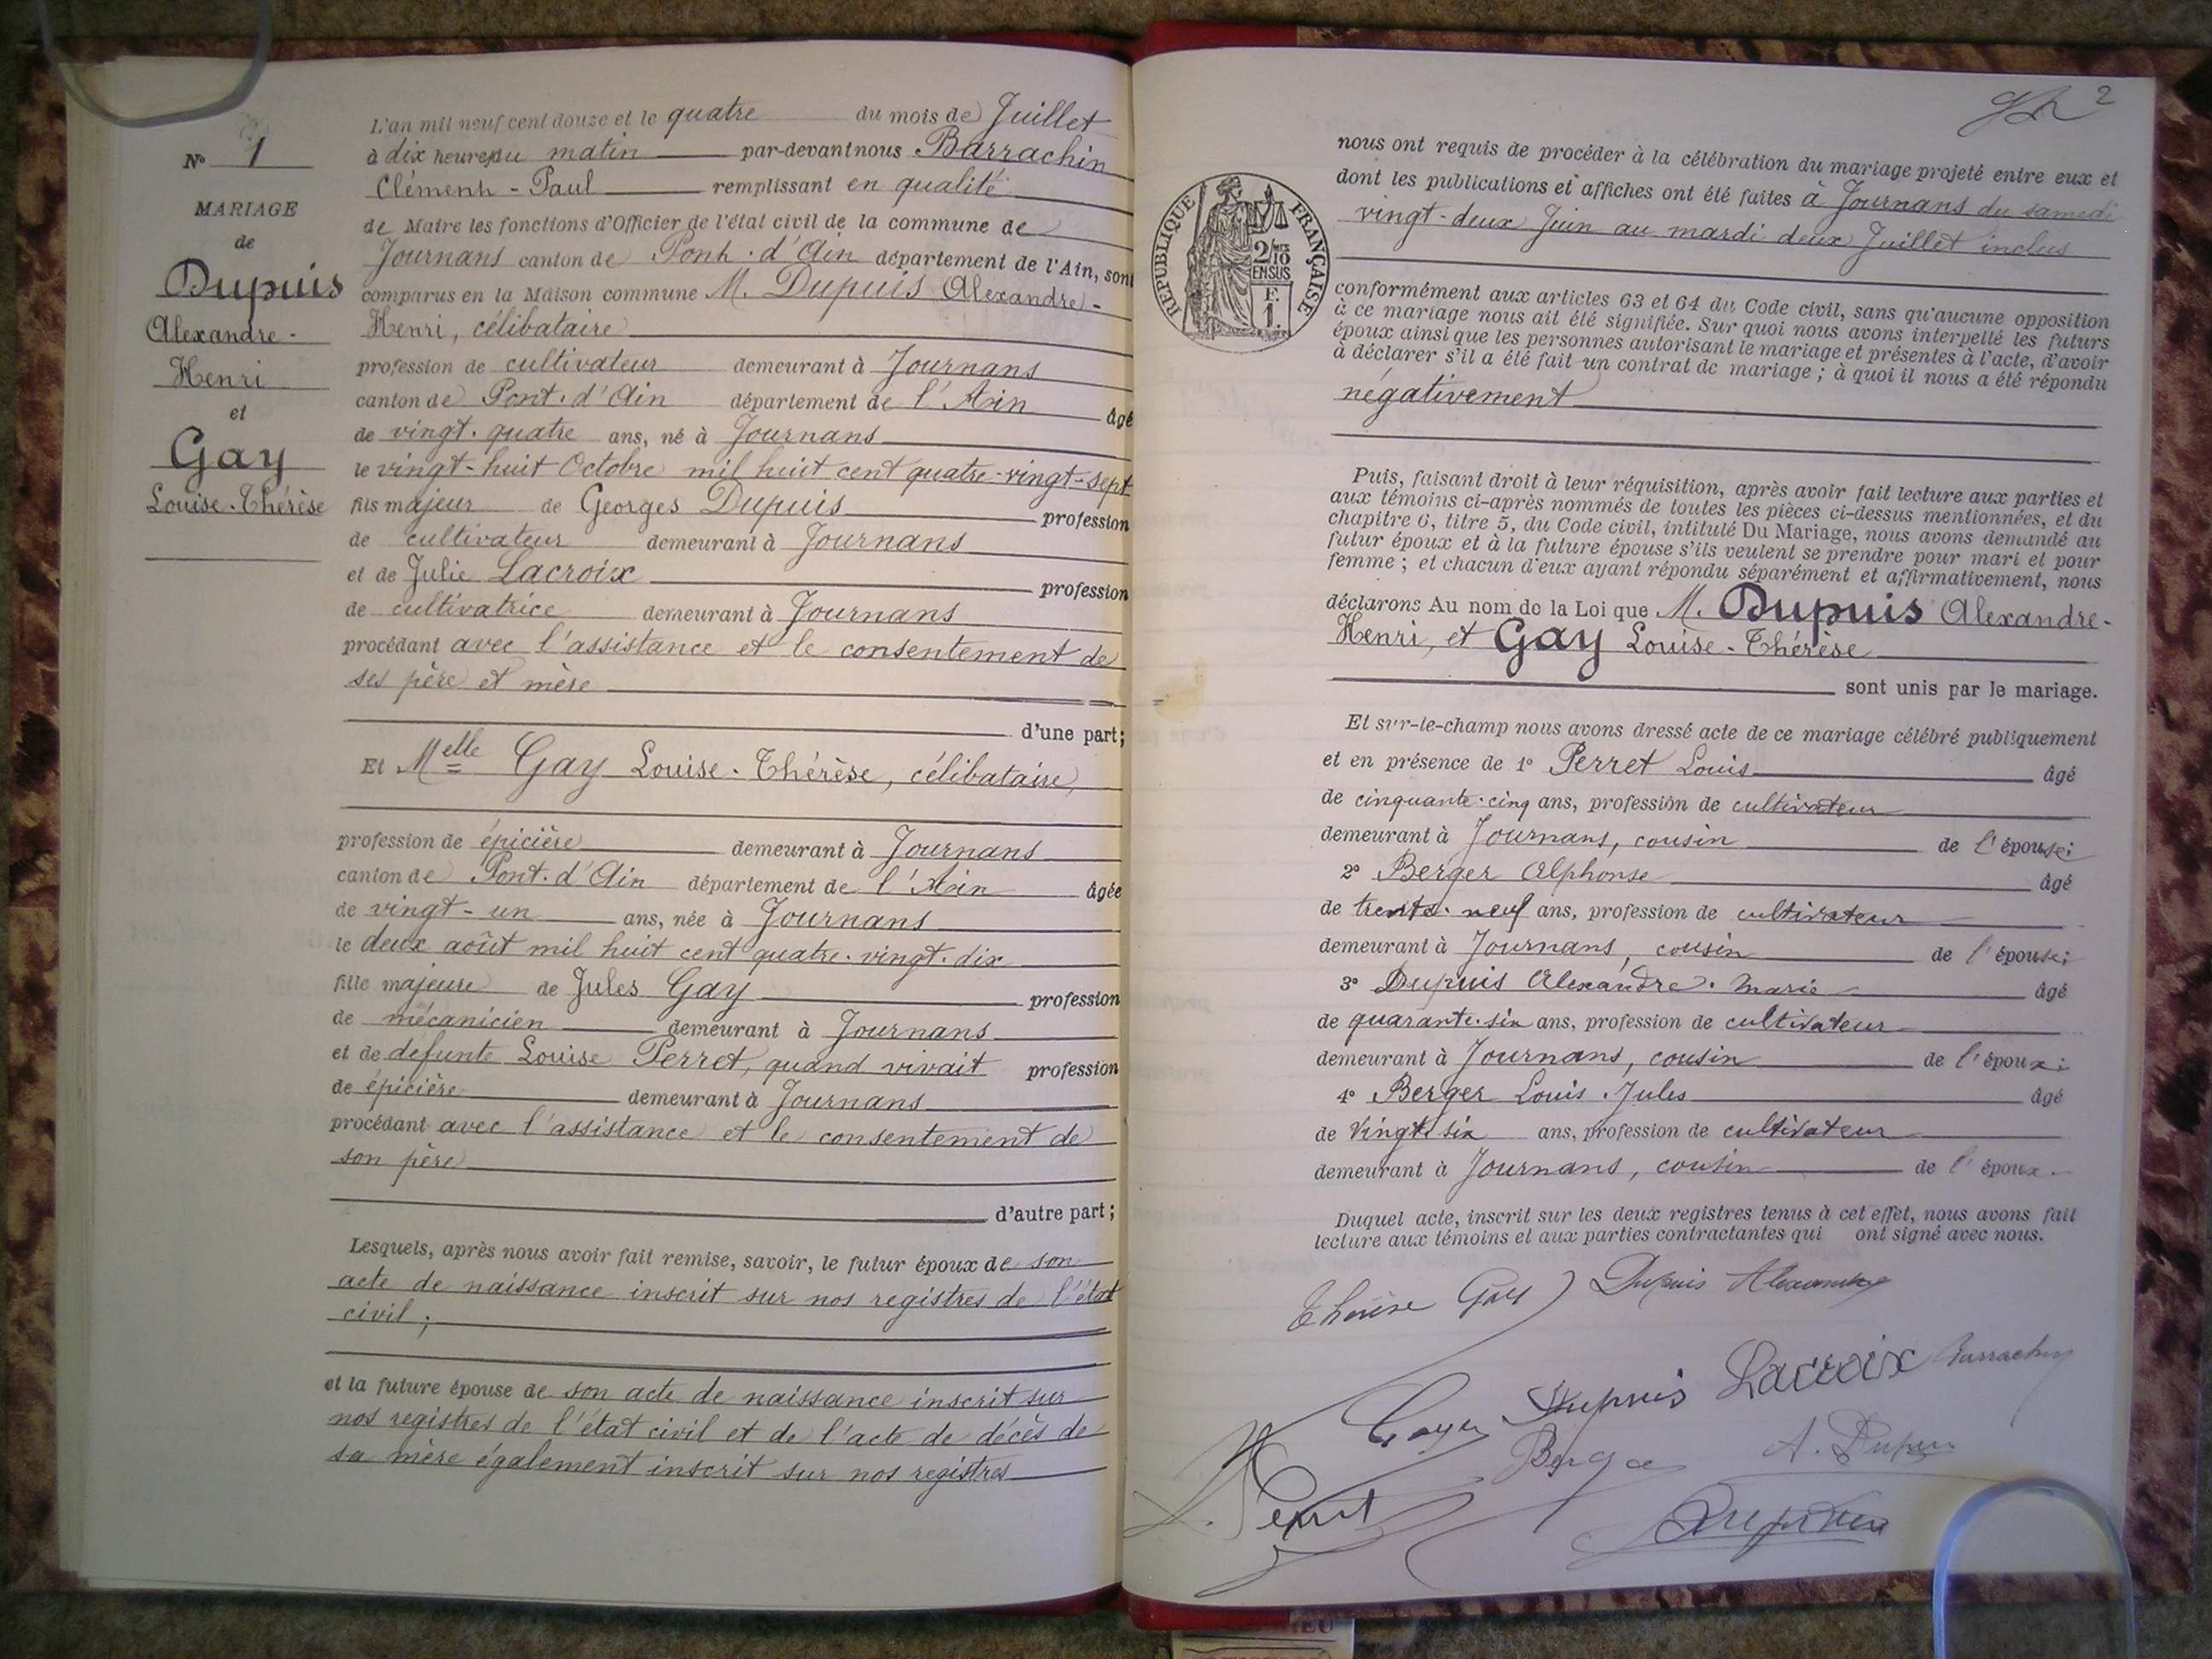 L'an mil neuf cent douze et le quatre du mois de Juillet
à dix heures du matin par-devant nous Barrachin
Clément - Paul remplissant en qualité
de Maire les fonctions d'Officier de l'état civil de la commune de
Journans canton de Pont. d'Ain département de l'Ain, sont
comparus en la Maison commune M. Dupuis Alexandre -
Henri, célibataire
profession de cultivateur demeurant à Journans
canton de Pont. d'Ain département de l'Ain âgé
de vingt. quatre ans, né à Journans
le vingt-huit Octobre mil huit cent quatre-vingt-sept
fils majeur de Georges Dupuis profession
de cultivateur demeurant à Journans
et de Julie Lacroix profession
de cultivatrice demeurant à Journans
procédant avec l'assistance et le consentement de
ses père et mère
d'une part;
Et Melle Gay Louise. Thérèse, célibataire,
profession de épicière demeurant à Journans
canton de Pont. d'Ain département de l'Ain âgée
de vingt - un ans, née à Journans
le deux août mil huit cent quatre. vingt. dix
fille majeure de Jules Gay profession
de mécanicien demeurant à Journans
et de defunte Louise Perret, quand vivait profession
de épicière demeurant à Journans
procédant avec l'assistance et le consentement de
son père
d'autre part;
Lesquels, après nous avoir fait remise, savoir, le futur époux de son
acte de naissance inscrit sur nos registres de l'état
civil;
et la future épouse de son acte de naissance inscrit sur
nos registres de l'état civil et de l'acte de décès de
sa mère également inscrit sur nos registres
No 1
MARIAGE
de
Dupuis
Alexandre -
Henri
et
Gay
Louise. Thérèse
2
REPUBLIQUE FRANÇAISE
2/10 EN SUS
F.
1.
nous ont requis de procéder à la célébration du mariage projeté entre eux et
dont les publications et affiches ont été faites à Journans du samedi
vingt-deux Juin au mardi deux Juillet inclus
conformément aux articles 63 et 64 du Code civil, sans qu'aucune opposition
à ce mariage nous ait été signifiée. Sur quoi nous avons interpellé les futurs
époux ainsi que les personnes autorisant le mariage et présentes à l'acte, d'avoir
à déclarer s'il a été fait un contrat de mariage; à quoi il nous a été répondu
négativement
Puis, faisant droit à leur réquisition, après avoir fait lecture aux parties et
aux témoins ci-après nommés de toutes les pièces ci-dessus mentionnées, et du
chapitre 6, titre 5, du Code civil, intitulé Du Mariage, nous avons demandé au
futur époux et à la future épouse s'ils veulent se prendre pour mari et pour
femme; et chacun d'eux ayant répondu séparément et affirmativement, nous
déclarons Au nom de la Loi que M. Dupuis Alexandre-
Henri, et Gay Louise - Thérèse
sont unis par le mariage.
Et sur-le-champ nous avons dressé acte de ce mariage célébré publiquement
et en présence de 1° Perret Louis âgé
de cinquante. cinq ans, profession de cultivateur
demeurant à Journans, cousin de l'épouse;
2° Berger Alphonse âgé
de trente. neuf ans, profession de cultivateur
demeurant à Journans, cousin de l'épouse;
3° Dupuis Alexandre. Marie âgé
de quarante. six ans, profession de cultivateur
demeurant à Journans, cousin de l'époux;
4° Berger Louis Jules âgé
de Vingt. six ans, profession de cultivateur
demeurant à Journans, cousin de l'époux.
Duquel acte, inscrit sur les deux registres tenus à cet effet, nous avons fait
lecture aux témoins et aux parties contractantes qui ont signé avec nous.
Thérèse Gay Dupuis Alexandre
Gay Dupuis Lacroix Barrachin
Berger A. Dupuis
L. Perret